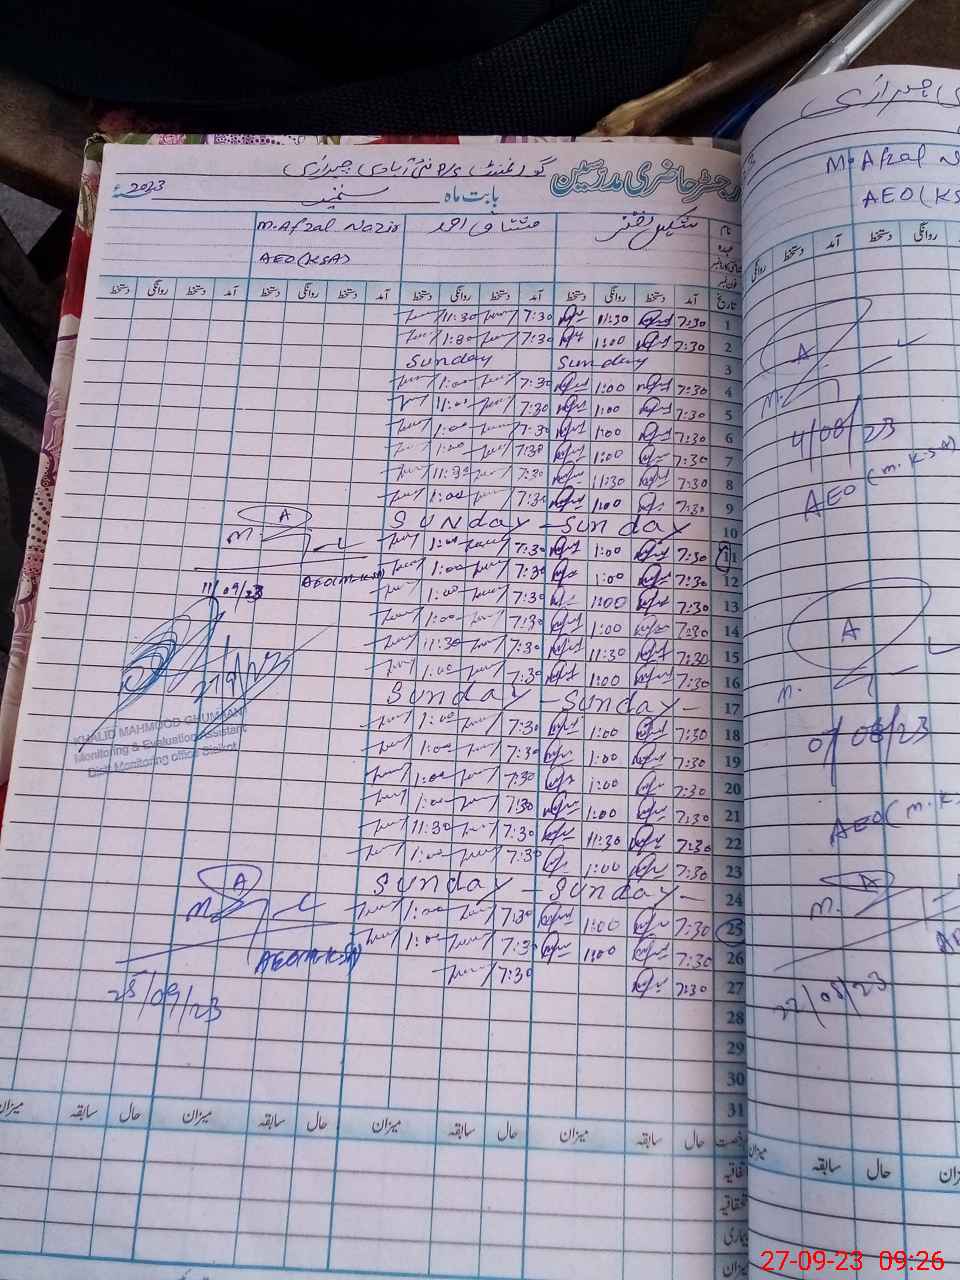 رجسٹر حاضری مدرسین
بابت ماہ ستمبر 2023ء
نام
مشتاق احمد M. Afzal Nazir
AEO (KSA)
تاریخ آمد دستخط روانگی دستخط آمد دستخط روانگی دستخط آمد دستخط روانگی دستخط
1 7:30 11:30 7:30 11:30
2 7:30 1:00 7:30 1:00
3 Sunday Sunday
4 7:30 1:00 7:30 1:00
5 7:30 1:00 7:30 1:00
6 7:30 1:00 7:30 1:00
7 7:30 1:00 7:30 1:00
8 7:30 11:30 7:30 11:30
9 7:30 1:00 7:30 1:00
10 Sunday - Sunday
A
11 7:30 1:00 7:30 1:00
12 7:30 1:00 7:30 1:00
AEO (M-KSA)
11/09/23
13 7:30 1:00 7:30 1:00
14 7:30 1:00 7:30 1:00
15 7:30 11:30 7:30 11:30
16 7:30 1:00 7:30 1:00
17 Sunday - Sunday -
KHALID MAHMOOD GHUMMAN
Monitoring & Evaluation Assistant
Distt Monitoring office Sialkot
18 7:30 1:00 7:30 1:00
19 7:30 1:00 7:30 1:00
20 7:30 1:00 7:30 1:00
21 7:30 1:00 7:30 1:00
22 7:30 11:30 7:30 11:30
23 7:30 1:00 7:30 1:00
24 Sunday - Sunday -
A
25 7:30 1:00 7:30 1:00
26 7:30 1:00 7:30 1:00
AEO (M-KSA)
25/09/23
27 7:30 7:30
28
29
30
31
رخصت حال سابقہ میزان حال سابقہ میزان حال سابقہ میزان حال سابقہ میزان
اتفاقیہ
بیماری
میزان
M. Afzal
AEO (KS
آمد دستخط روانگی
A
4/08/23
AEO (M.KSA)
A
07/08/23
AEO (M.KS
A
22/08/23
حال سابقہ میزان
27-09-23 09:26